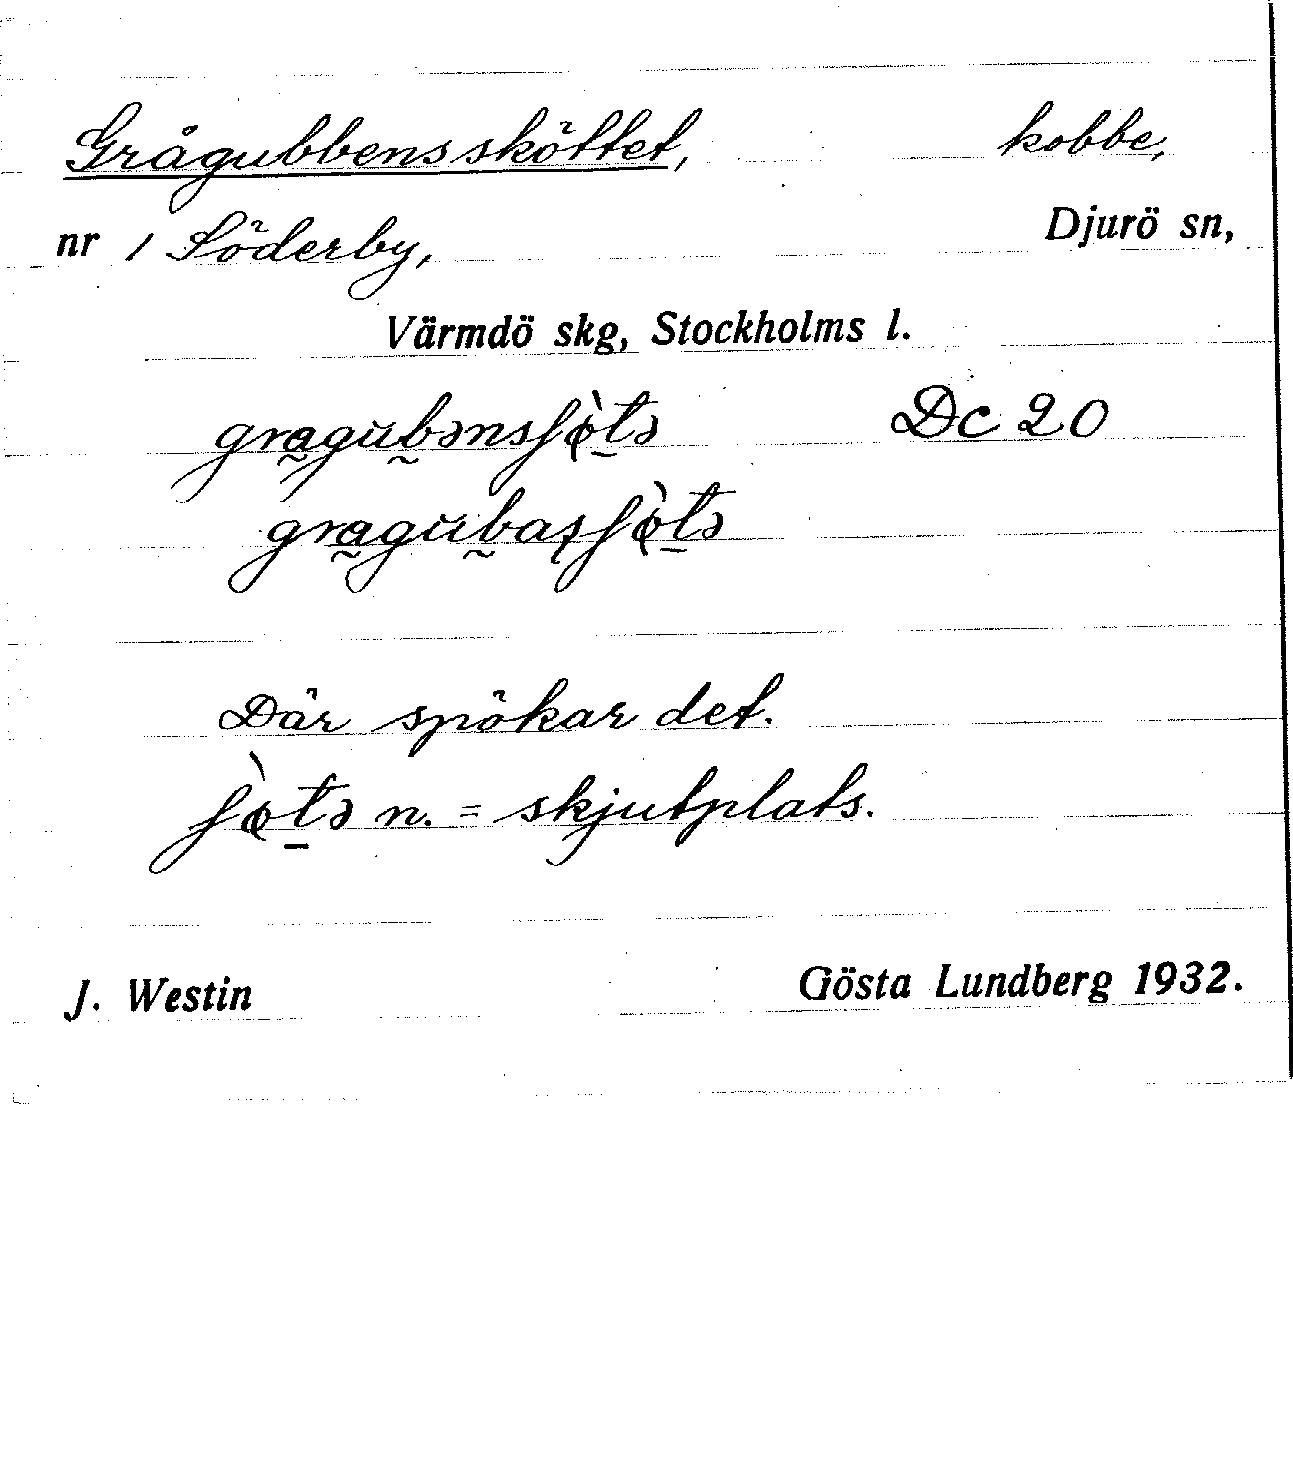 Grågubbenssköttet, kobbe,
nr 1 Söderby, Djurö sn,
Värmdö skg, Stockholms l.
gra̰gub̰ənsʃɵ̀t̠ə Dc 20
gra̰gub̰aşʃɵ̀t̠ə
Där spökar det.
ʃɵ̀t̠ə n. = skjutplats.
J. Westin Gösta Lundberg 1932.